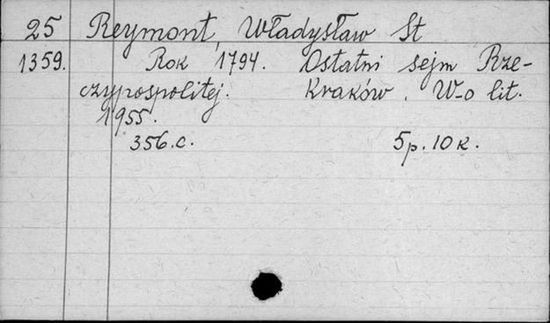 25 Reymont, Władysław St
1359. Rok 1794. Ostatni sejm Rze-
czypospolitej. Kraków. W-o lit.
1955.
356.c. 5p.10к.